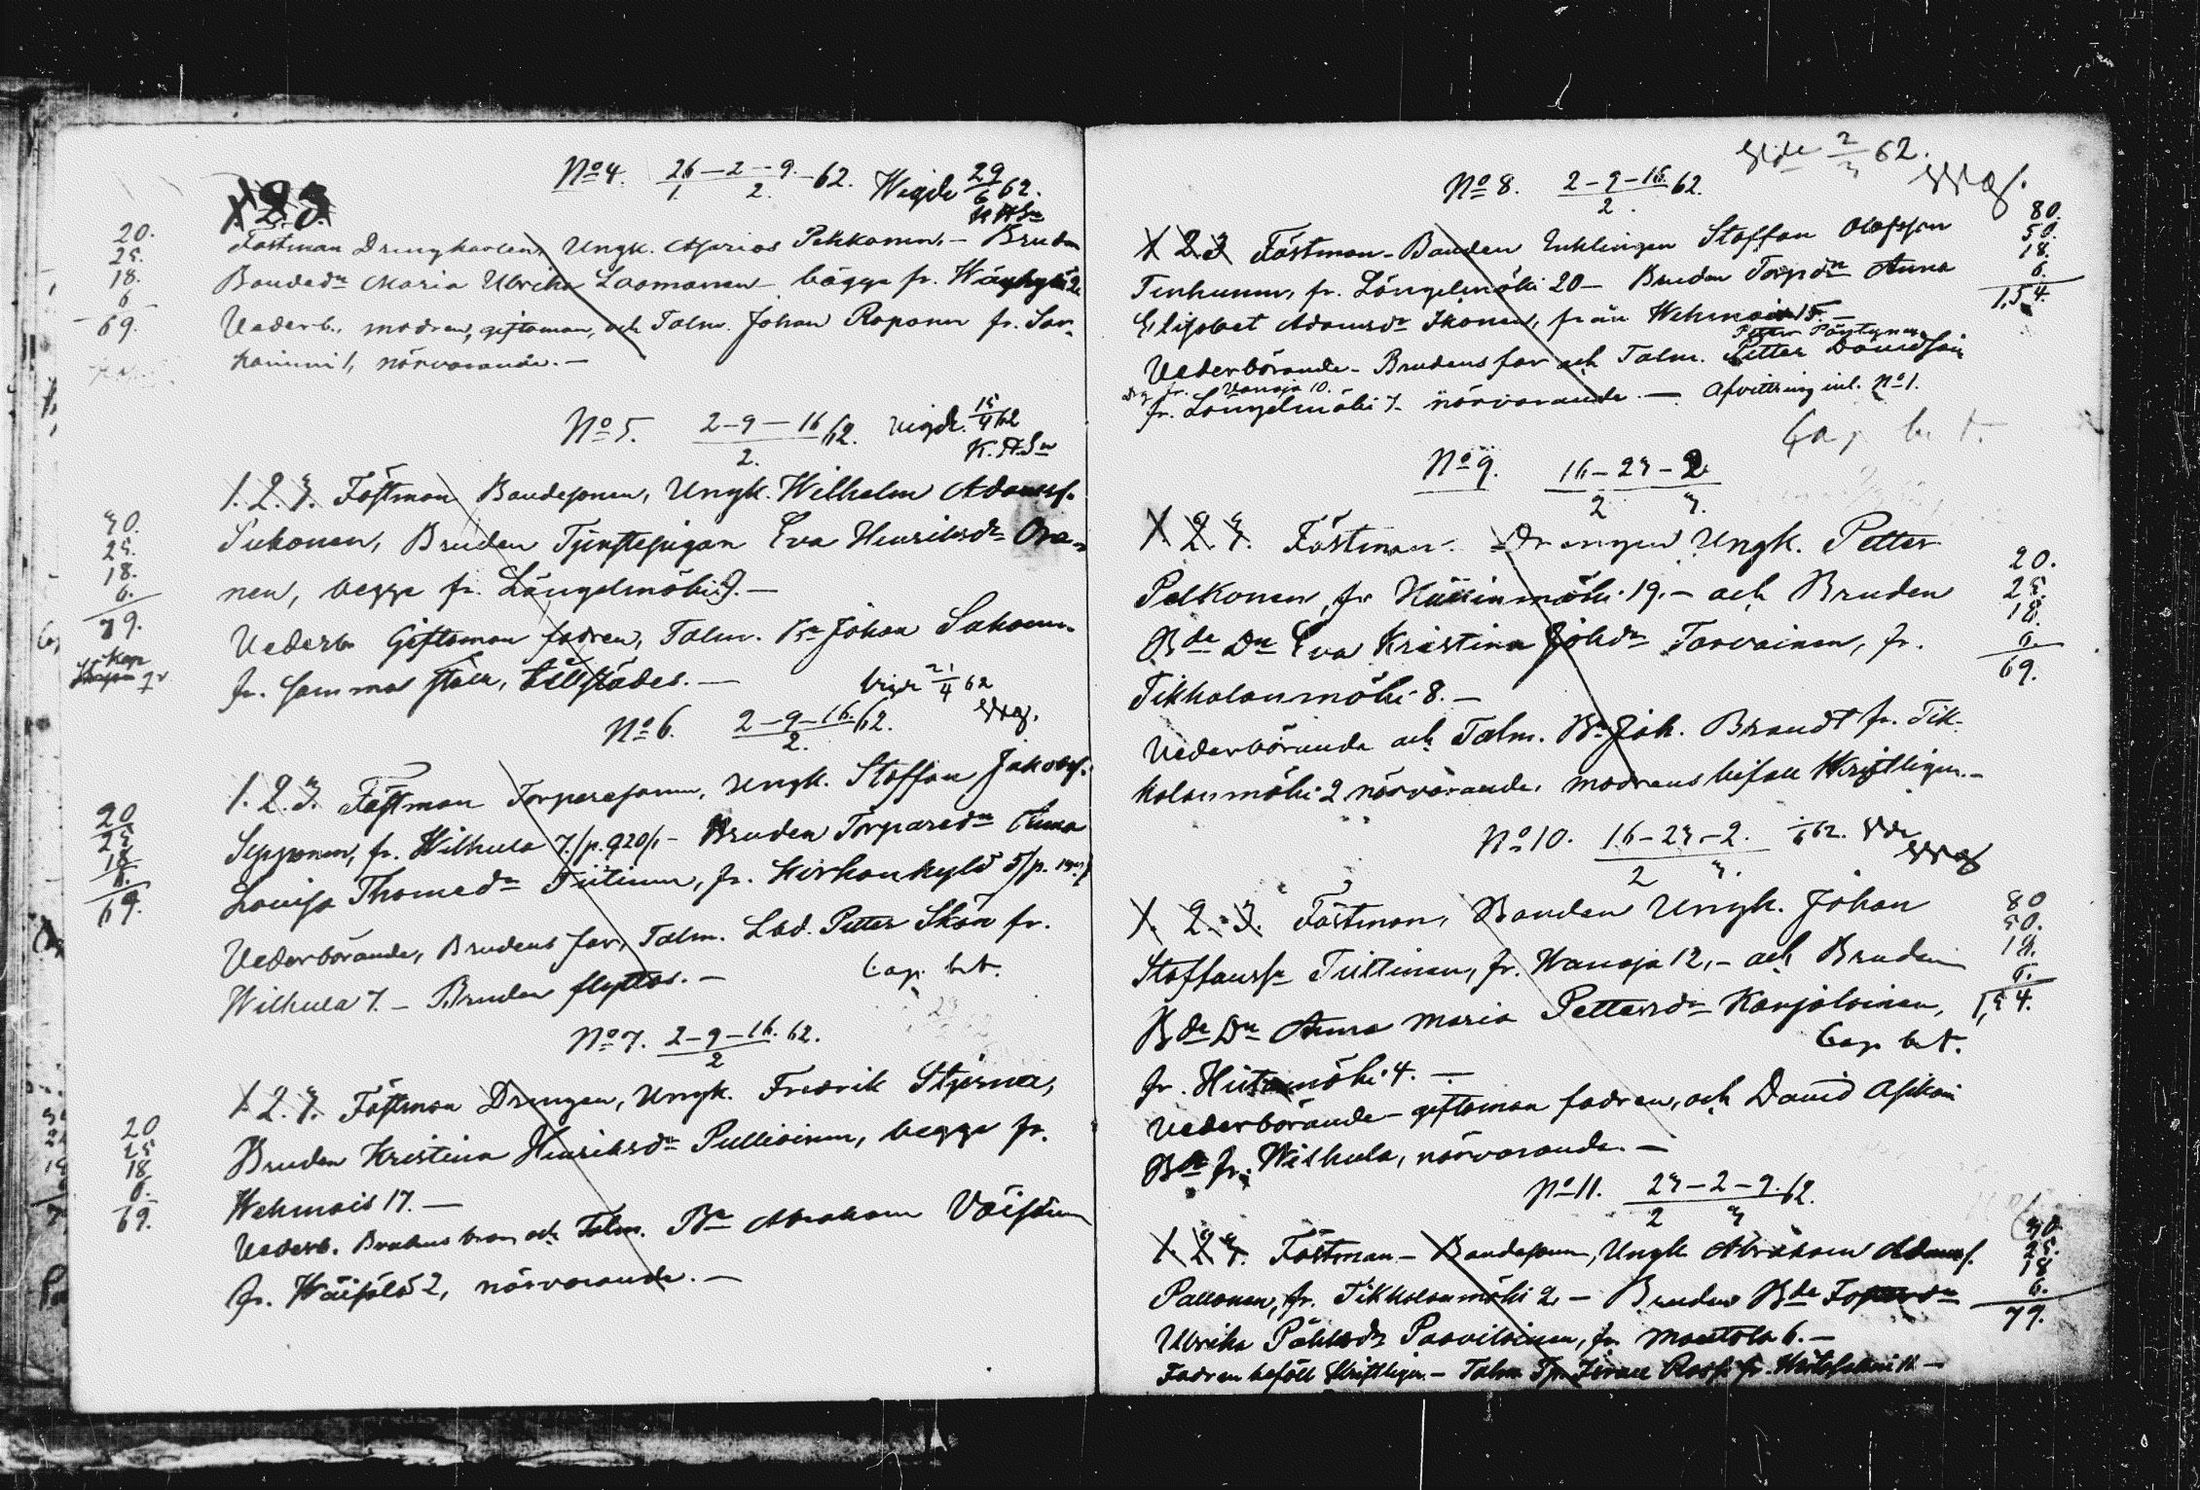 No 4. 26–2–9. 62. Wigde 29/6 62.
1. 2.
1 2 3
Fästman Drengkarlen, Ungk. Pekkonen, – Bruden
Bondedr Maria Ulrika Laamanen bägge fr.
Vederb. modren, giftoman, och Talm. Johan Raponen fr. Sar-
kamini 1, närvarande. –
20.
25.
18.
6
69.
No 5. 2–9–16 62. vigde 15/4 62
2.
1. 2. 3. Fästman Bondesonen, Ungk. Wilhelm Adamsf.
Sukonen, Bruden Tjenstepigan Eva Henriksdr
nen, begge fr. Längelmäki 9. –
Vederb. Giftoman fadren, Talm. Bn Johan
fr. samma ställe, tillstädes. –
30.
25.
18.
6.
79.
Kap
No 6. 2–9–16. 62. vigde 21/4 62
2.
1. 2. 3. Fästman Torparesonen, Ungk. Staffan Jakobsf.
Sepponen, fr. Wilhula 7. /p. 920/. – Bruden Torparedr Anna
Lovisa Thomasdr Tiitinen, fr. Kirkonkylä 5 /p.
Vederbörande, Brudens far, Talm. Lbd. Petter Skön fr.
Wilhula 7. – Bruden flyttas. – Cap. bet.
20
25
18
6.
69.
No 7. 2–9–16. 62.
2
1. 2. 3. Fästman Drengen, Ungk. Fredrik Stjerna,
Bruden Kristina Henriksdr Pulliainen, begge fr.
Wehmais 17. –
Vederb. Brudens bror och Talm. Bn Abraham Väisänen
fr. Wäisälä 2, närvarande. –
20
25
18
6.
69.
2/3 62.
No 8. 2–9–16. 62.
2.
1 2 3 Fästman – Bonden Enklingen Staffan Olofsson
Tenhunen, fr. Längelmäki 20 – Bruden Torpdr Anna
Elisabet Adamsdr Ikonen, från Wehmais 15. –
Petter Pöntynen
Vederbörande – Brudens far och Talm. Petter Davidsain
fr. Vanaja 10.
fr. Längelmäki 7 – närvarande. – Afvittring inl. No 1.
Cap bet.
80.
50.
18.
6.
1,54.
No 9. 16–23–2
2 3.
1 2. 3. Fästman – Drengen Ungk. Petter
Pelkonen, fr. Häkinmäki 19. – och Bruden
Bde Dn Eva Kristina Johdr Tarvainen, fr.
Tikkalanmäki 8. –
Vederbörande och Talm. Bn Joh. Brandt fr. Tik-
kalanmäki 2 närvarande, modrens bifall skriftligen. –
20.
25.
18.
6.
69.
No 10. 16–23–2. 62.
2 3.
1. 2. 3. Fästman, Bonden Ungk. Johan
Staffansf. Tiittinen, fr. Wanaja 12, – och Bruden
Bde Dn Anna Maria Pettersdr Karjalainen,
Cap bet.
fr. Hietamäki 4. –
Vederbörande – giftoman fadren, och David Asikain
Bn fr. Wilhula, närvarande. –
80
50.
18.
6.
1,54.
No 11. 23–2–9. 62.
2 3
1. 2 3. Fästman – Bondesonen, Ungk Abraham Adamsf.
Pallonen, fr. Tikkalanmäki 2 – Bruden Bde
Ulrika Påhlsdr Paavilainen, fr. Mantola 6. –
Fadren befall skriftligen – Talm.
30.
25.
18
6.
79.